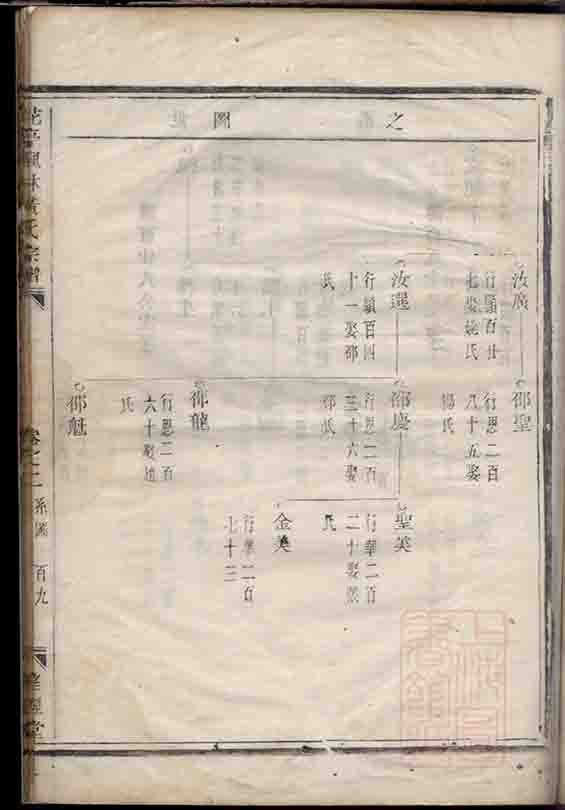 之 圖
汝廣
行顯百廿
七娶施氏
邵聖
行恩二百
八十五娶
楊氏
汝選
行顯百四
十一娶邵
氏
邵慶
行恩二百
三十六娶
邵氏
聖英
行華二百
二十娶
氏
金英
行華二百
七十三
邵龍
行恩二百
六十娶
氏
邵魁
黃氏宗譜
卷之二
系圖
百九
堂